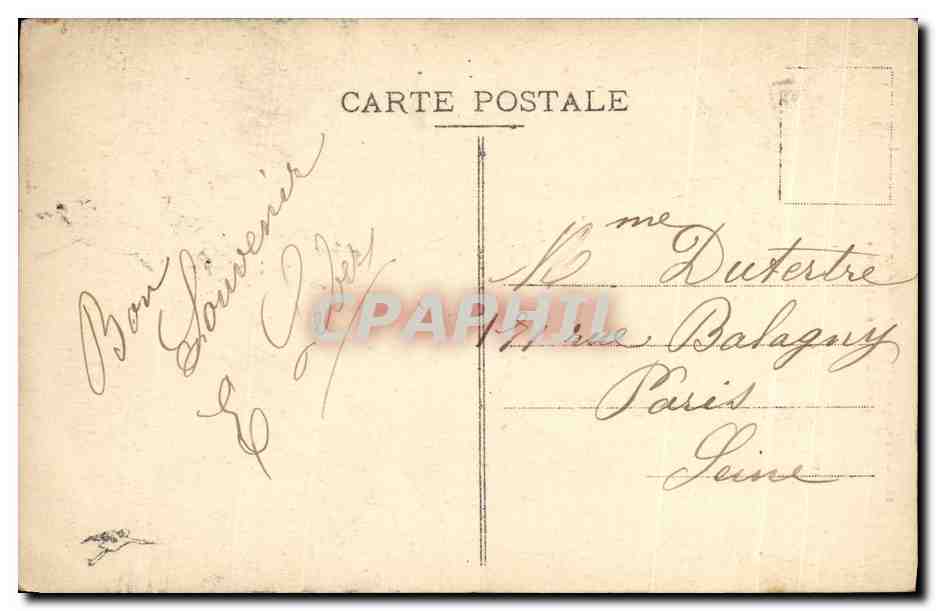 CARTE POSTALE
Bon
Souvenir
E
Mme Dutertre
rue Balagny
Paris
Seine
CPAPHIL